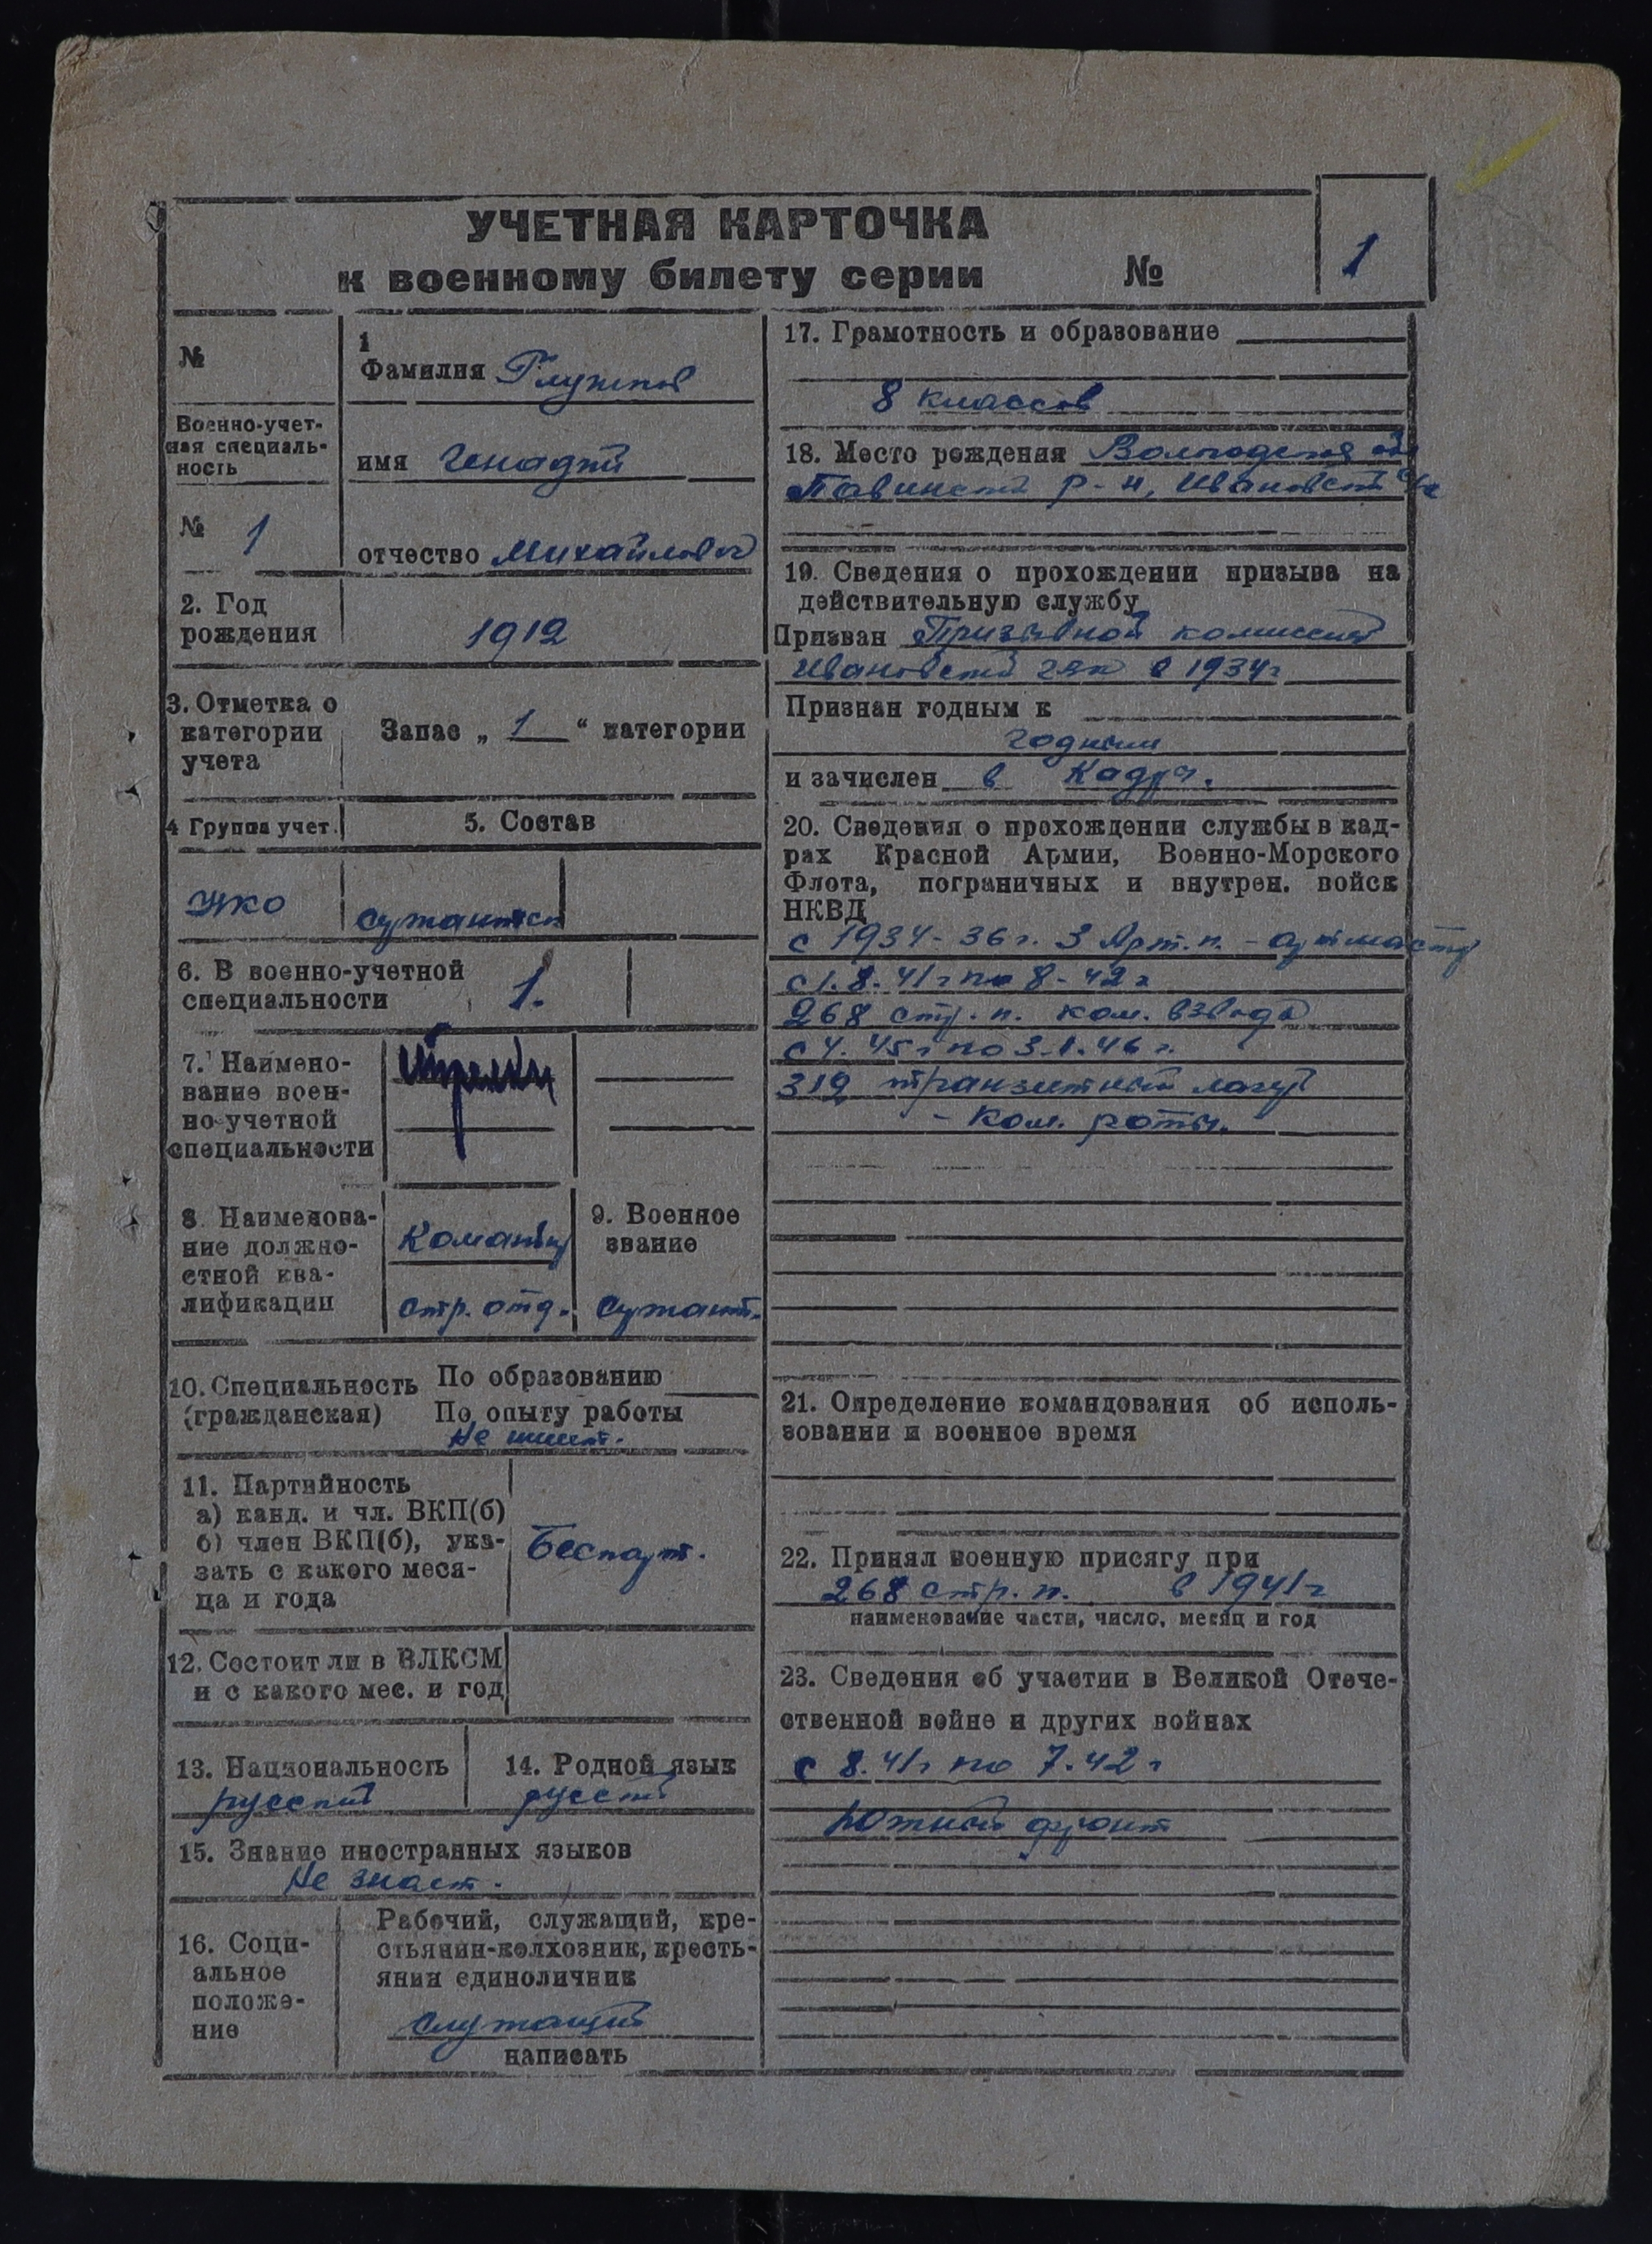 УЧЕТНАЯ КАРТОЧКА
к военному билету серии №
1
№
1
Фамилия
Военно-учет-
ная специаль-
ность
имя Генадий
№ 1
отчество Михайлович
2. Год
рождения
1912
3. Отметка о
категории
учета
Запас „ 1 “ категории
4 Группа учет.
5. Состав
НКО
сержантск
6. В военно-учетной
специальности
1.
7. Наимено-
вание воен-
но-учетной
специальности
8. Наименова-
ние должно-
стной ква-
лификации
Командир
стр. отд.
9. Военное
звание
сержант.
10. Специальность
(гражданская)
По образованию
По опыту работы
Не имеет.
11. Партийность
а) канд. и чл. ВКП(б)
б) член ВКП(б), ука-
зать с какого меся-
ца и года
Беспарт.
12. Состоит ли в ВЛКСМ
и с какого мес. и год
13. Национальность
русский
14. Родной язык
русский
15. Знание иностранных языков
Не знает.
16. Соци-
альное
положе-
ние
Рабочий, служащий, кре-
стьянин-колхозник, кресть-
янин единоличник
служащий
написать
17. Грамотность и образование
8 классов
18. Место рождения Вологодская обл
Павинский р-н, Ивановский с/с
19. Сведения о прохождении призыва на
действительную службу
Призван Призывной комиссией
в 1934г
Признан годным к
годным
и зачислен в Кадры.
20. Сведения о прохождении службы в кад-
рах Красной Армии, Военно-Морского
Флота, пограничных и внутрен. войск
НКВД
с 1934-36г. 3 Арт. п. -
с 1.8.41г по 8-42г
268 стр. п. ком. взвода
с 4.45г по 3.1.46г.
319 транзитный лагерь
- Ком. роты.
21. Определение командования об исполь-
зовании и военное время
22. Принял военную присягу при
268 стр. п. в 1941г
наименование части, число, месяц и год
23. Сведения об участии в Великой Отече-
ственной войне и других войнах
с 8.41г по 7.42г
Южный фронт